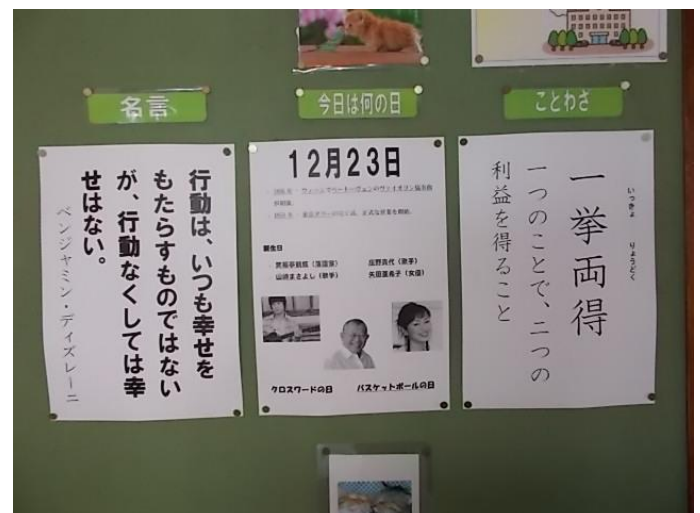 名言
今日は何の日
ことわざ
行動は、いつも幸せを
もたらすものではない
が、行動なくしては幸
せはない。
ベンジャミン・ディズレーニ
12月23日
誕生日
笑福亭鶴瓶（落語家）
庄野真代（歌手）
山崎まさよし（歌手）
矢田亜希子（女優）
クロスワードの日
バスケットボールの日
いっきょ りょうどく
一挙両得
一つのことで、二つの
利益を得ること